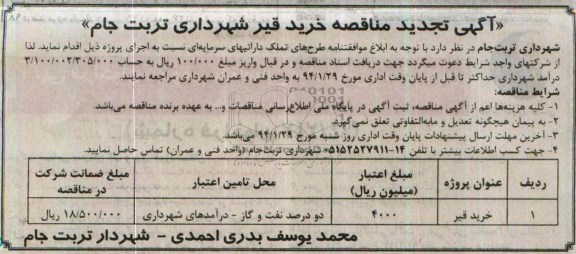 «آگهی تجدید مناقصه خرید قیر شهرداری تربت جام»
شهرداری تربت‌جام در نظر دارد با توجه به ابلاغ موافقتنامه طرح‌های تملک دارائیهای سرمایه‌ای نسبت به اجرای پروژه ذیل اقدام نماید. لذا
از شرکتهای واجد شرایط دعوت میگردد جهت دریافت اسناد مناقصه و در قبال واریز مبلغ ۱۰۰/۰۰۰ ریال به حساب ۳/۱۰۰/۰۰۲/۳۰۵/۰۰۰
درآمد شهرداری حداکثر تا قبل از پایان وقت اداری مورخ ۹۴/۱/۲۹ به واحد فنی و عمران شهرداری مراجعه نمایند.
شرایط مناقصه:
۱- کلیه هزینه‌ها اعم از آگهی مناقصه، ثبت آگهی در پایگاه ملی اطلاع‌رسانی مناقصات و... به عهده برنده مناقصه می‌باشد.
۲- به پیمان هیچگونه تعدیل و مابه‌التفاوتی تعلق نمی‌گیرد.
۳- آخرین مهلت ارسال پیشنهادات پایان وقت اداری روز شنبه مورخ ۹۴/۱/۲۹ می‌باشد.
۴- جهت کسب اطلاعات بیشتر با تلفن ۱۴-۰۵۱۵۲۵۲۷۹۱۱ شهرداری تربت‌جام (واحد فنی و عمران) تماس حاصل نمایید.
ردیف عنوان پروژه مبلغ اعتبار (میلیون ریال) محل تامین اعتبار مبلغ ضمانت شرکت در مناقصه
۱ خرید قیر ۴۰۰۰ دو درصد نفت و گاز - درآمدهای شهرداری ۱۸/۵۰۰/۰۰۰ ریال
محمد یوسف بدری احمدی - شهردار تربت جام